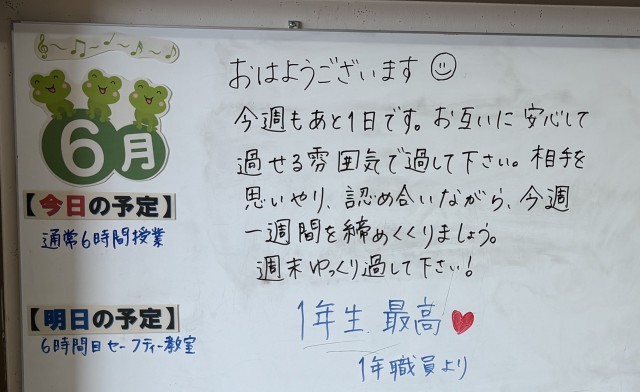 6月
【今日の予定】
通常6時間授業
【明日の予定】
6時間目セーフティー教室
おはようございます
今週もあと1日です。お互いに安心して
過せる雰囲気で過して下さい。相手を
思いやり、認め合いながら、今週
一週間を締めくくりましょう。
週末ゆっくり過して下さい!
1年生 最高
1年職員より